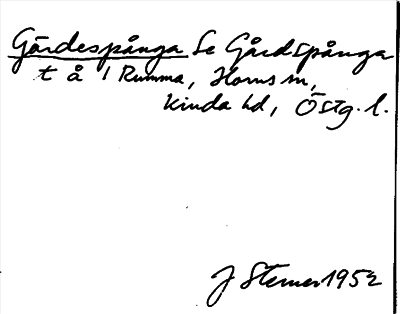 Gärdespånga Se Gårdspånga
t å 1 Rumma, Horns sn,
Kinda hd, Östg. l.
J Sterner 1952